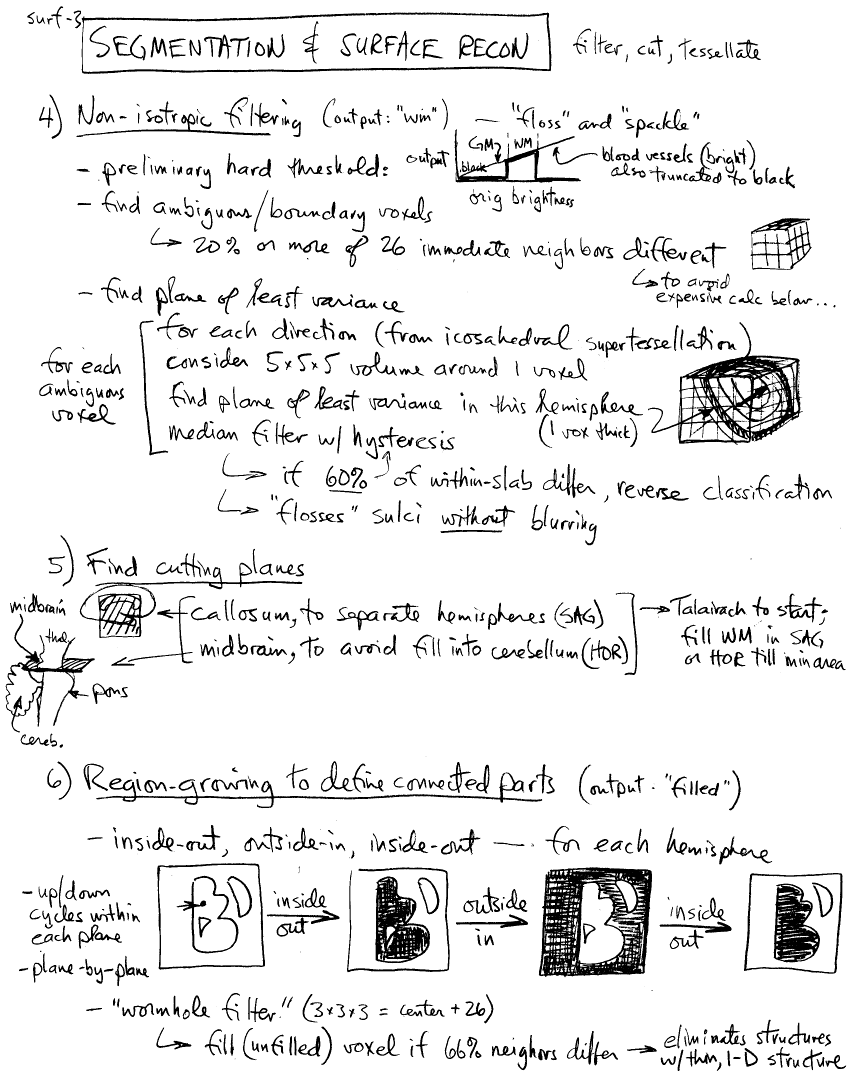 surf-3
SEGMENTATION & SURFACE RECON
filter, cut, tessellate
4) Non-isotropic filtering (output: "wm") — "floss" and "spackle"
- preliminary hard threshold:
output
GM
WM
black
orig brightness
blood vessels (bright)
also truncated to black
- find ambiguous/boundary voxels
↳ 20% or more of 26 immediate neighbors different
↳ to avoid
expensive calc below...
- find plane of least variance
for each
ambiguous
voxel
for each direction (from icosahedral supertessellation)
consider 5×5×5 volume around 1 voxel
find plane of least variance in this hemisphere
(1 vox thick)
median filter w/ hysteresis
↳ if 60% of within-slab differ, reverse classification
↳ "flosses" sulci without blurring
5) Find cutting planes
midbrain
thal
pons
cereb.
callosum, to separate hemispheres (SAG)
midbrain, to avoid fill into cerebellum (HOR)
→ Talairach to start;
fill WM in SAG
or HOR till min area
6) Region-growing to define connected parts (output: "filled")
- inside-out, outside-in, inside-out — for each hemisphere
- up/down
cycles within
each plane
- plane-by-plane
inside
out
outside
in
inside
out
- "wormhole filter" (3×3×3 = center + 26)
↳ fill (unfilled) voxel if 66% neighors differ → eliminates structures
w/thin, 1-D structure